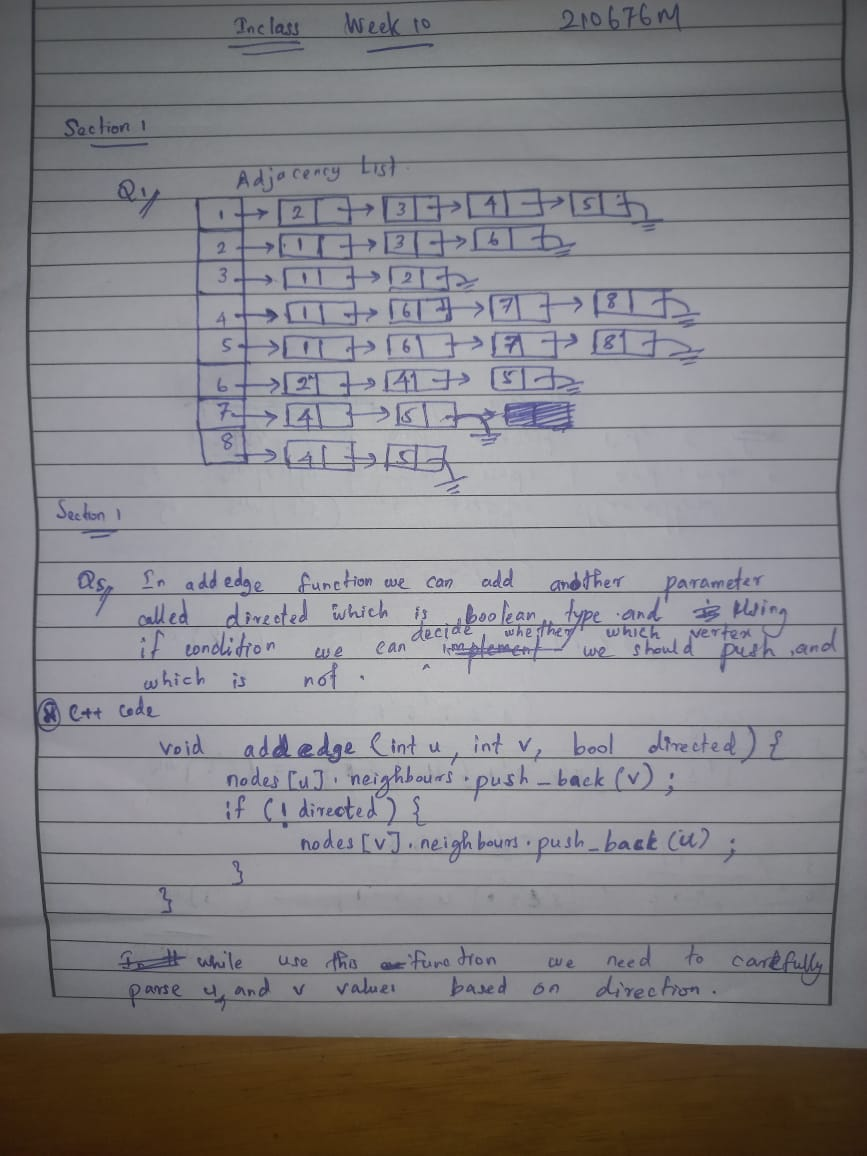 Inclass Week 10 210676M
Section 1
Q1, Adjacency List.
1 2 3 4 5
2 1 3 6
3 1 2
4 1 6 7 8
5 1 6 7 8
6 2 4 5
7 4 5
8 4 5
Section 1
Q5, In add edge function we can add another parameter
called directed which is boolean type and Using
if condition we can decide whether which vertex we should push and
which is not.
C++ code
void add edge (int u, int v, bool directed) {
nodes [u] . neighbours . push_back (v) ;
if (! directed) {
nodes [v] . neighbours . push_back (u) ;
}
}
while use this function we need to carefully
parse u, and v values based on direction.